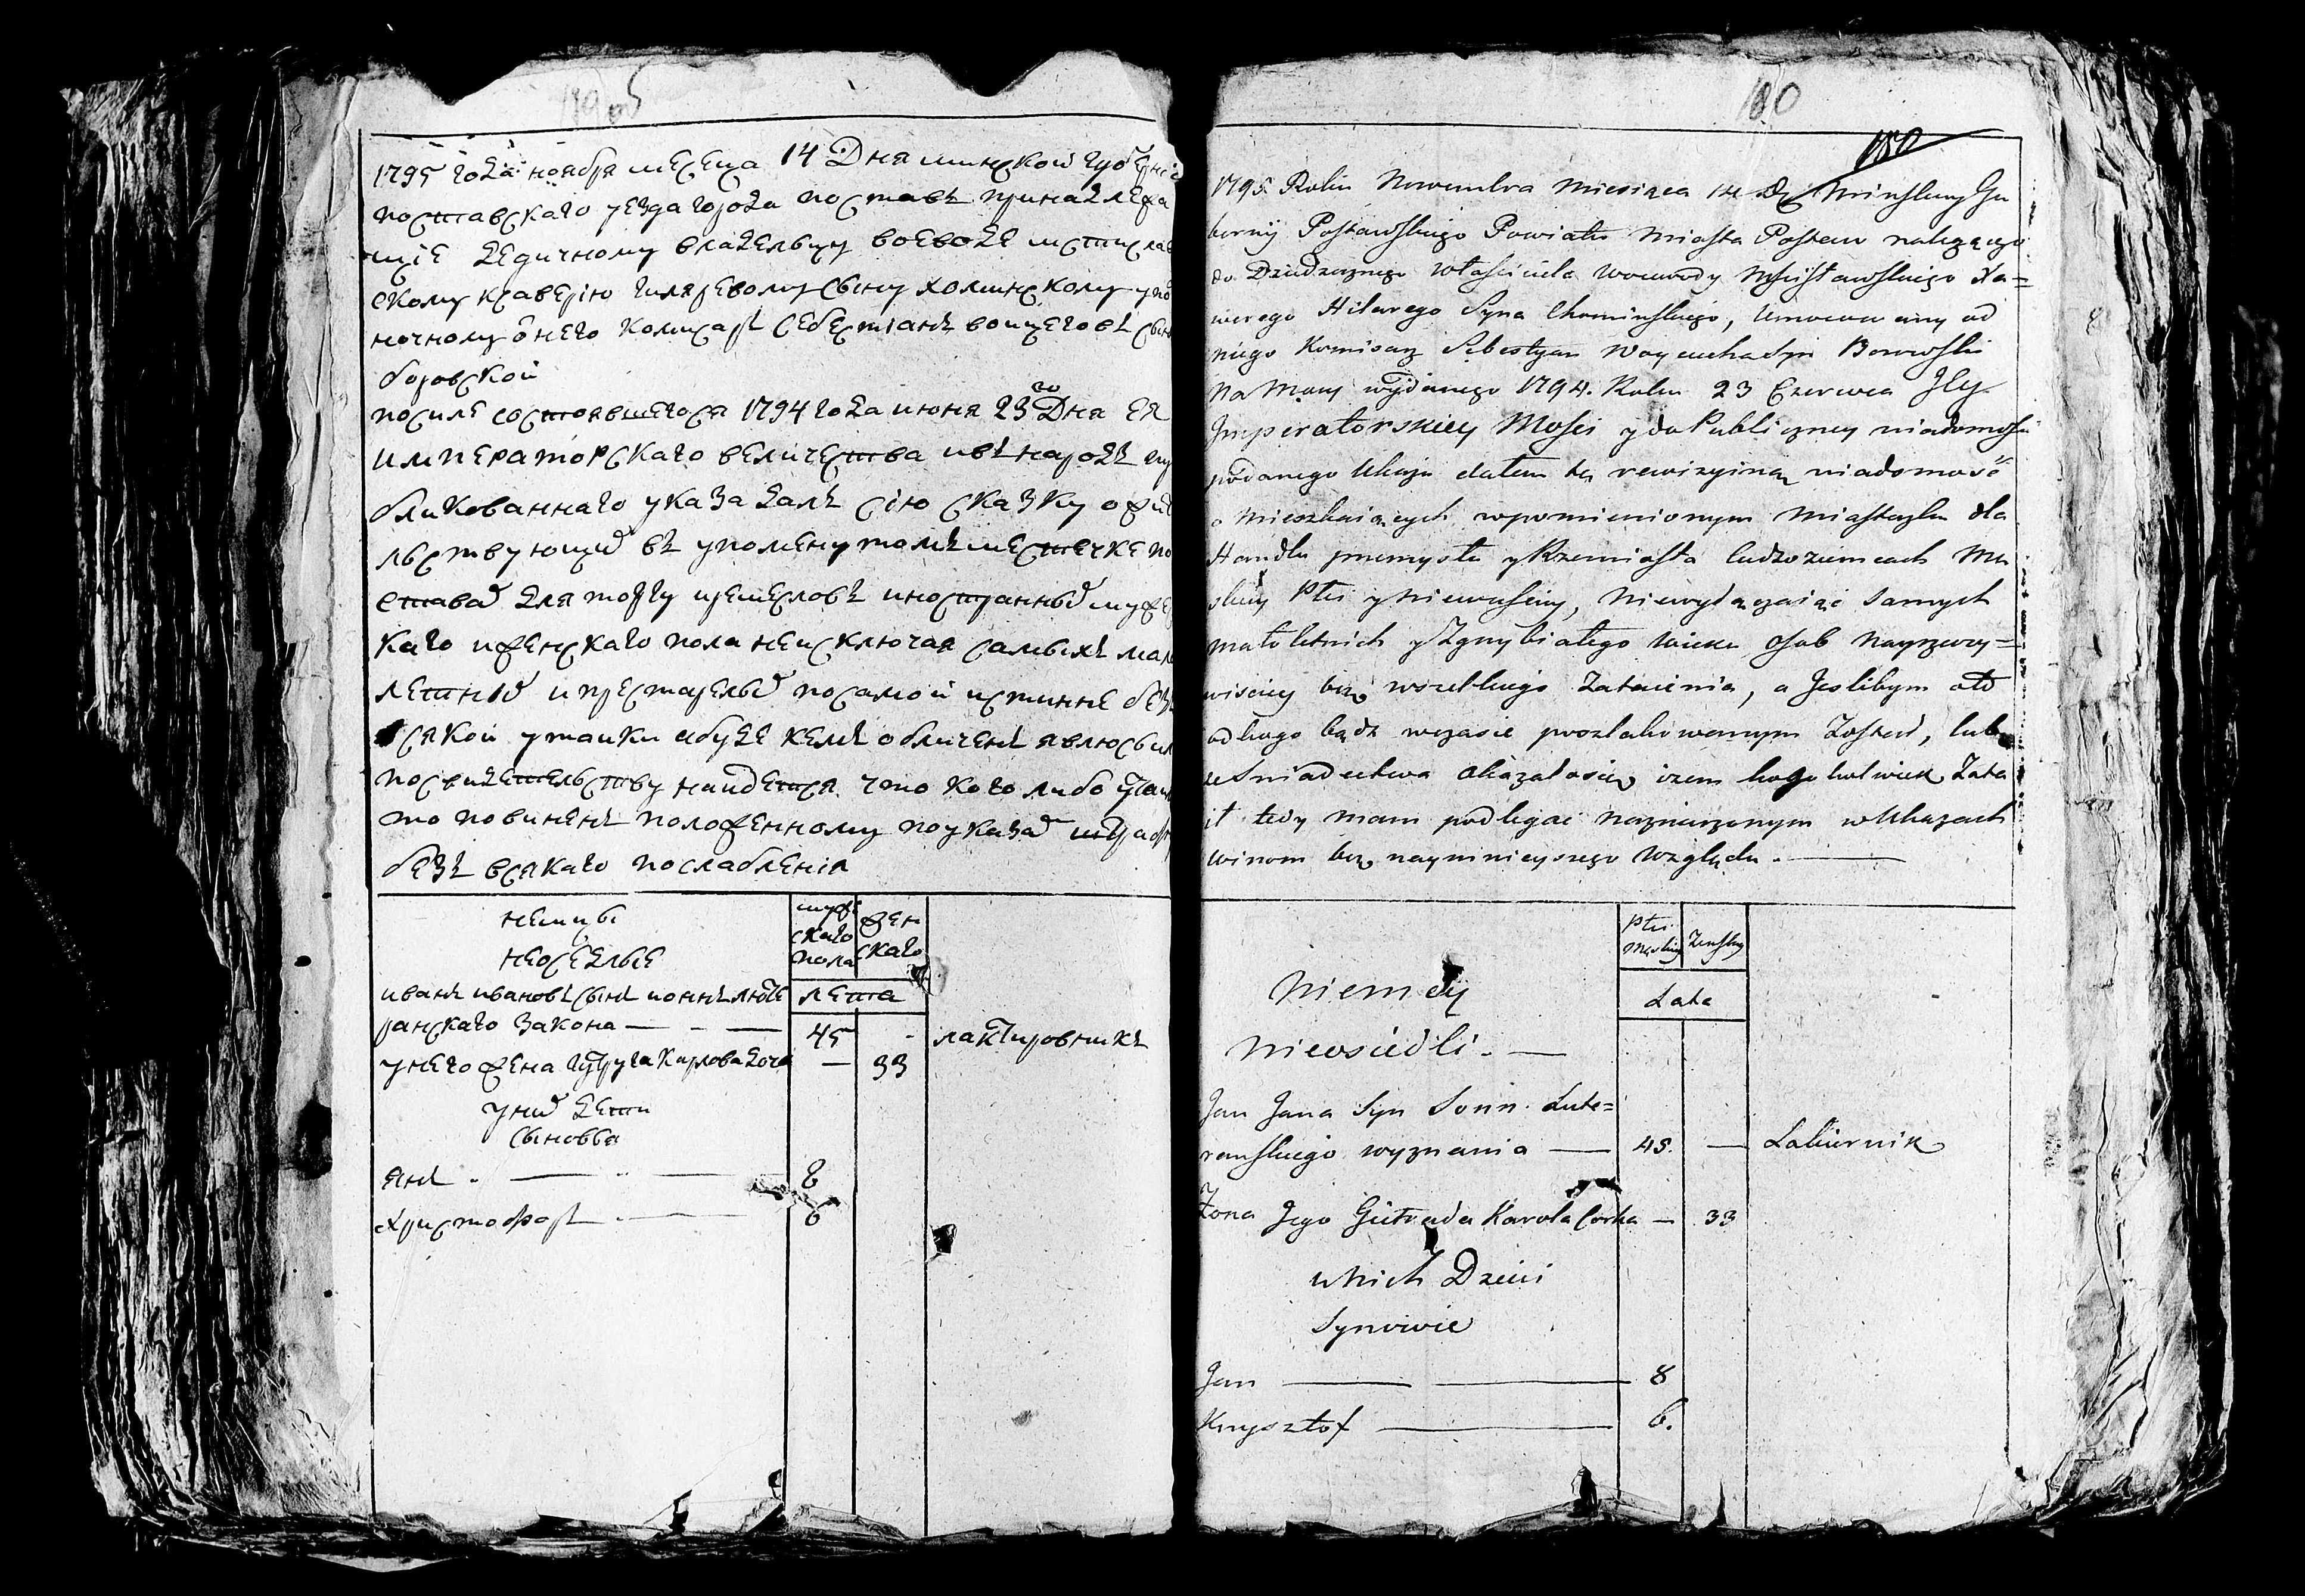 180
1795 года ноября месеца 14 Дня минской губерніе
поставскаго уезда города поставъ принадлежа
щіе дедичному владельцу воеводе мстисла
скому ксаверію гиляревому сыну хоминскому упо
ночному о него комисаръ себестіанъ
боровской
посиле состоявшегося 1794 года июня 23го Дня ея
императорскаго величества ивъ народъ пу
бликованнаго указа далъ сію сказку о жите
льствующиⷯ въ упомянутомъ местечке по
ставаⷯ для торгу иремесловъ иностранныⷯ мужес
каго иженскаго пола неисключая самыхъ мало
летниⷯ и престарелыⷯ посамой истинне безъ
всякой утайки абуде кемъ обличенъ явлюсь или
посвидетельству найдется что кого либо утаи
то повиненъ положенному поуказаⷨ штрафу
безъ всякаго послабленія
немцы
неоседлые
муже
скаго
пола
жен
скаго
лета
иванъ ивановъ сынъ ионнъ люте
ранскаго закона — 45 - лактировникъ
унего жена гутруга Карлова доч — 33
униⷯ дети
сыновья
янъ — 8
христофоръ — 6
180
180
1795. Roku Nowembra Miesiąca 14 D. Minskiey Gu
bernij Postawskiego Powiatu Miasta Postaw należącego
do Dziedzicznego Właściciela Woiewody Mścisławskiego Xa=
werego Hilarego Syna Chominskiego, Umocowany od
niego Komisarz Sebestyan Woyciecha Syn Borowski
Na Mocy wydanego 1794. Roku 23 Czerwca Jey
Imperatorskiey Mości y do Publiczney wiadomości
podanego Ukazu dałem tę rewizyiną wiadomość
o Mieszkaiących wpomienionym Miasteczku dla
Handlu przemysłu y Rzemiosła Cudzoziemcach Mę
skiey Płci y niewieściey, Niewyłączaiąc samych
małoletnich y Zgrzybiałego Wieku Osob Nayrzeczy=
wiściey bez wszelkiego Zataienia, a Jeslibym
od kogo bądz wczasie poszlakowanym Zostać, lub
ze Swiadectwa Okazałosię iżem kogokolwiek Zata
ił tedy mam podlegać Naznaczonym w Ukazach
winom bez naymnieyszego Względu. —
Niemcy
Nieosiedli. —
Płci
Męskiey
Żenskiey
Lata
Jan Jana Syn Jonn. Lute=
ranskiego wyznania — 45. — Lakiernik
Żona Jego Gietruda Karola Corka — 33
u Nich Dzieci
Synowie
Jan — 8
Krzysztof — 6.